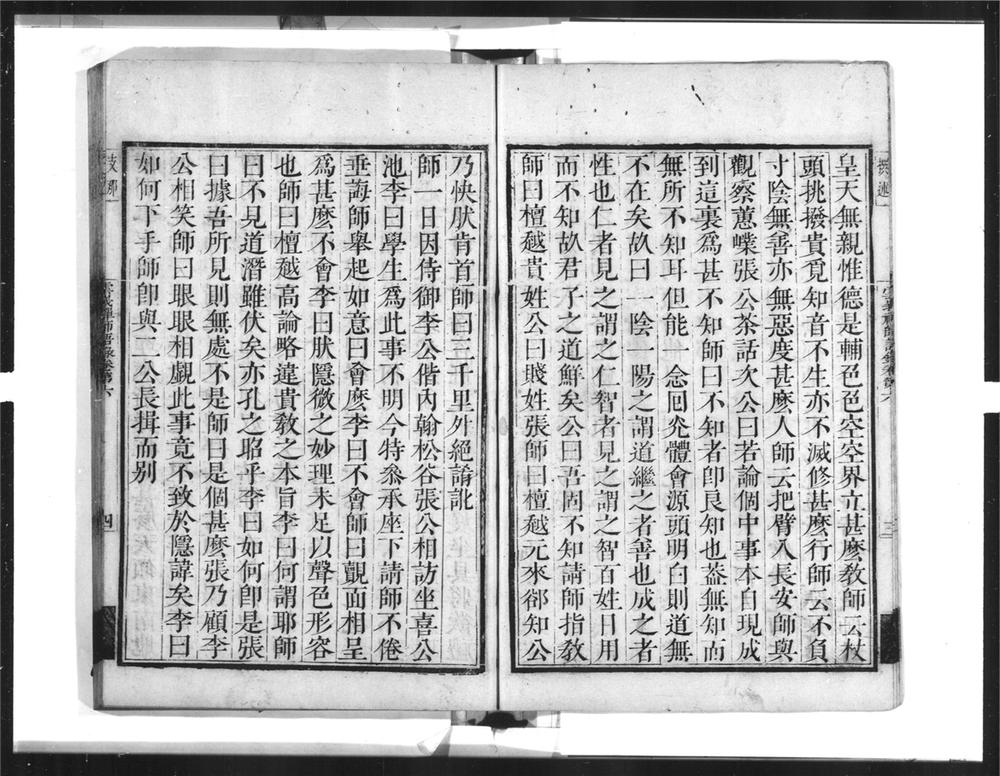 皇天無親惟德是輔色色空空界立甚麼教師云杖
頭挑撥貴覓知音不生亦不滅修甚麼行師云不負
寸陰無善亦無惡度甚麼人師云把臂入長安師與
觀察蕙嵘張公茶話次公曰若論個中事本自現成
到這裏為甚不知師曰不知者即良知也葢無知而
無所不知耳但能一念回光體會源頭明白則道無
不在矣故曰一陰一陽之謂道繼之者善也成之者
性也仁者見之謂之仁智者見之謂之智百姓日用
而不知故君子之道鮮矣公曰吾固不知請師指教
師曰檀越貴姓公曰賤姓張師曰檀越元來卻知公
乃快肰肯首師曰三千里外絕誵訛
師一日因侍御李公偕內翰松谷張公相訪坐喜公
池李曰學生為此事不明今特叅承座下請師不倦
垂誨師舉起如意曰會麼李曰不會師曰覿面相呈
為甚麼不會李曰肰隱微之妙理未足以聲色形容
也師曰檀越高論略違貴教之本旨李曰何謂耶師
曰不見道潛雖伏矣亦孔之昭乎李曰如何即是張
曰據吾所見則無處不是師曰是個甚麼張乃顧李
公相笑師曰眼眼相覷此事竟不致於隱諱矣李曰
如何下手師即與二公長揖而别
四